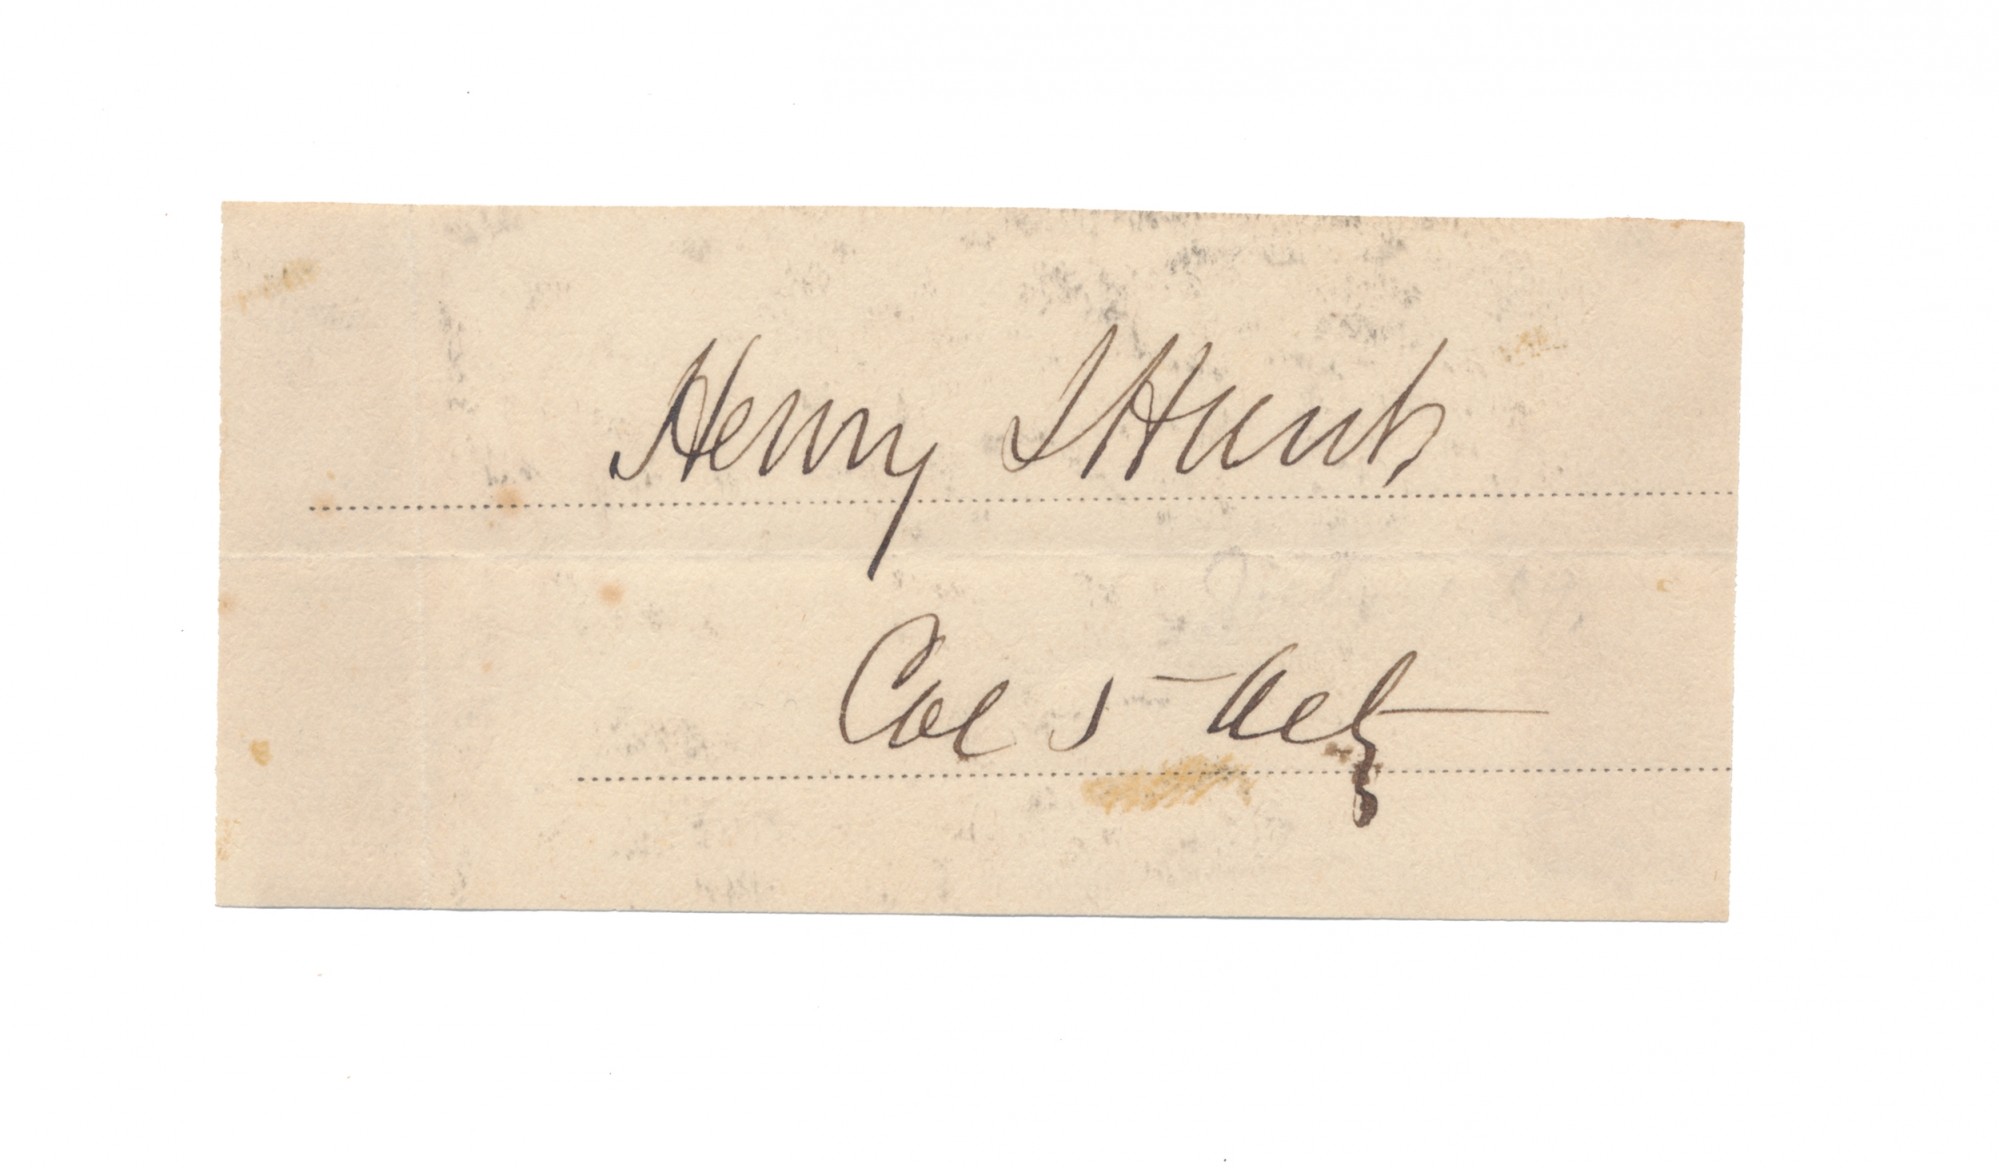 Henry J Hunt
Col 5 Art